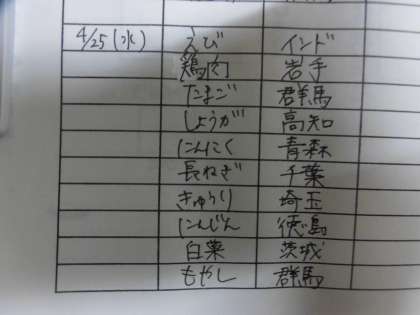 4/25(水) えび インド
鶏肉 岩手
たまご 群馬
しょうが 高知
にんにく 青森
長ねぎ 千葉
きゅうり 埼玉
にんじん 徳島
白菜 茨城
もやし 群馬